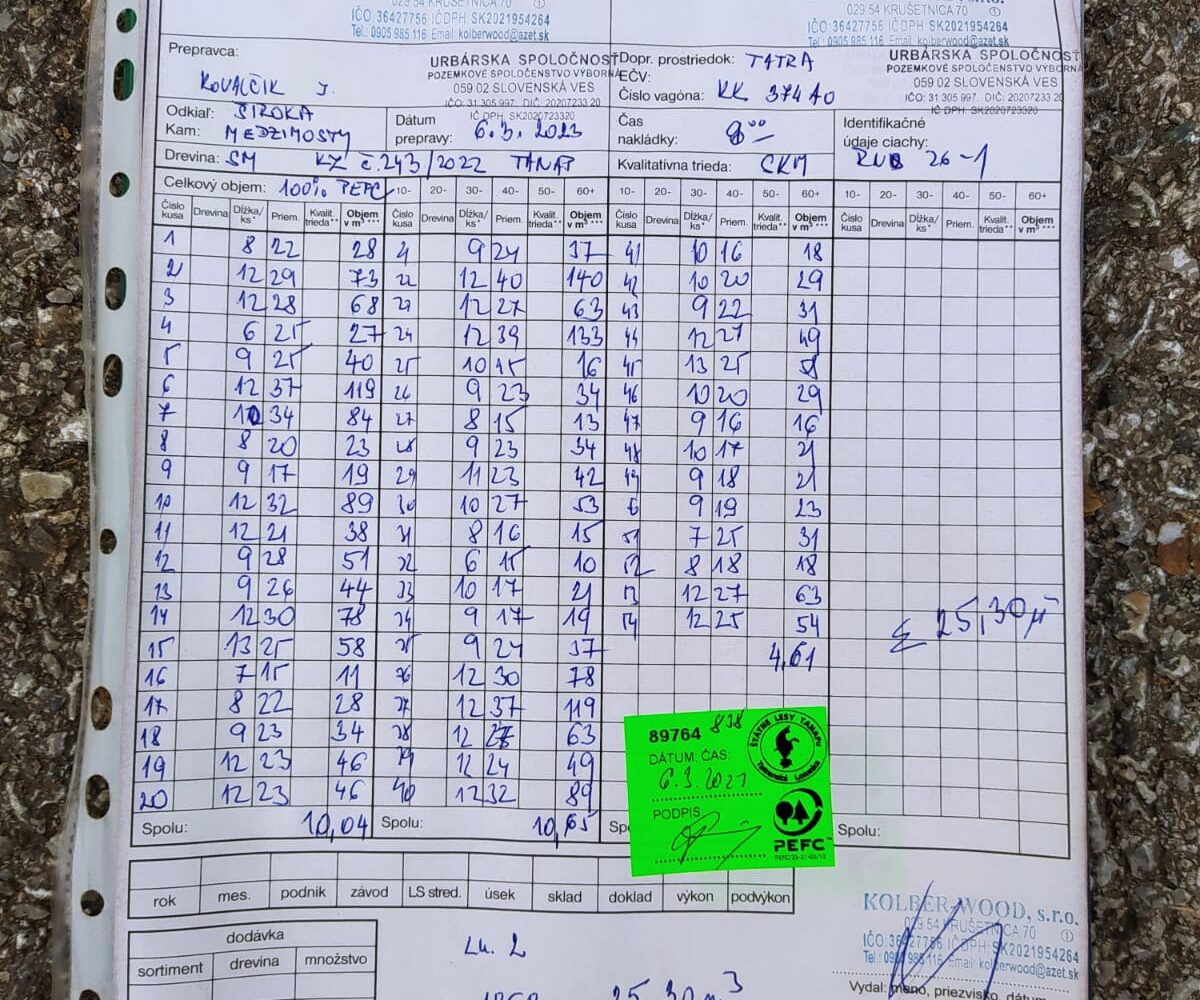 029 54 KRUŠETNICA 70 ①
IČO: 36427756 IČ DPH SK2021954264
Tel.: 0905 985 116 Email: kolberwood@azet.sk
029 54 KRUŠETNICA 70 ①
IČO: 36427756 IČ DPH SK2021954264
Tel.: 0905 985 116 Email: kolberwood@azet.sk
Prepravca: KOVALČIK J.
URBÁRSKA SPOLOČNOSŤ
POZEMKOVÉ SPOLOČENSTVO VÝBORNÁ
059 02 SLOVENSKÁ VES
IČO: 31 305 997 DIČ: 20207233 20
IČ DPH: SK2020723320
Dopr. prostriedok: TATRA
EČV:
Číslo vagóna: KK 374 AO
URBÁRSKA SPOLOČNOSŤ
POZEMKOVÉ SPOLOČENSTVO VÝBORNÁ
059 02 SLOVENSKÁ VES
IČO: 31 305 997 DIČ: 20207233 20
IČ DPH: SK2020723320
Odkiaľ: ŠIROKA
Kam: MEDZIMOSTY
Dátum prepravy: 6.3. 2023
Čas nakládky: 8 00
Identifikačné údaje ciachy: 26-1
Drevina: SM KZ č.243/2022 TANAP
Kvalitatívna trieda: CKM
Celkový objem: 100% PEFC 10- 20- 30- 40- 50- 60+ 10- 20- 30- 40- 50- 60+ 10- 20- 30- 40- 50- 60+
Číslo kusa Drevina Dĺžka/ks* Priem. Kvalit. trieda** Objem v m³ *** Číslo kusa Drevina Dĺžka/ks* Priem. Kvalit. trieda** Objem v m³ *** Číslo kusa Drevina Dĺžka/ks* Priem. Kvalit. trieda** Objem v m³ *** Číslo kusa Drevina Dĺžka/ks* Priem. Kvalit. trieda** Objem v m³ ***
1 8 22 28 9 24 37 41 10 16 18
2 12 29 73 22 12 40 140 42 10 20 29
3 12 28 68 23 12 27 63 43 9 22 31
4 6 25 27 24 12 39 133 44 12 27 49
5 9 25 40 25 10 15 16 45 13 25 58
6 12 37 119 26 9 23 34 46 10 20 29
7 10 34 84 27 8 15 13 47 9 16 16
8 8 20 23 28 9 23 34 48 10 17 21
9 9 17 19 29 11 23 42 49 9 18 21
10 12 32 89 30 10 27 53 9 19 23
11 12 21 38 31 8 16 15 51 7 25 31
12 9 28 51 32 6 15 10 52 8 18 18
13 9 26 44 33 10 17 21 53 12 27 63
14 12 30 78 34 9 17 19 54 12 25 54
15 13 25 58 35 9 24 37 4,61
Σ 25,30 m³
16 7 15 11 36 12 30 78
17 8 22 28 37 12 37 119
18 9 23 34 38 12 27 63
19 12 23 46 39 12 24 49
20 12 23 46 40 12 32 89
Spolu: 10,04 Spolu: 10,65 Sp Spolu:
89764 838
DÁTUM, ČAS:
6.3.2021
PODPIS
ŠTÁTNE LESY TANAPU
Tatranská Lomnica
PEFC
rok mes. podnik závod LS stred. úsek sklad doklad výkon podvýkon
dodávka
sortiment drevina množstvo
25,30 m³
KOLBER-WOOD, s.r.o.
029 54 KRUŠETNICA 70 ①
IČO: 36427756 IČ DPH SK2021954264
Tel.: 0905 985 116 Email: kolberwood@azet.sk
Vydal: meno, priezvisko, dátum